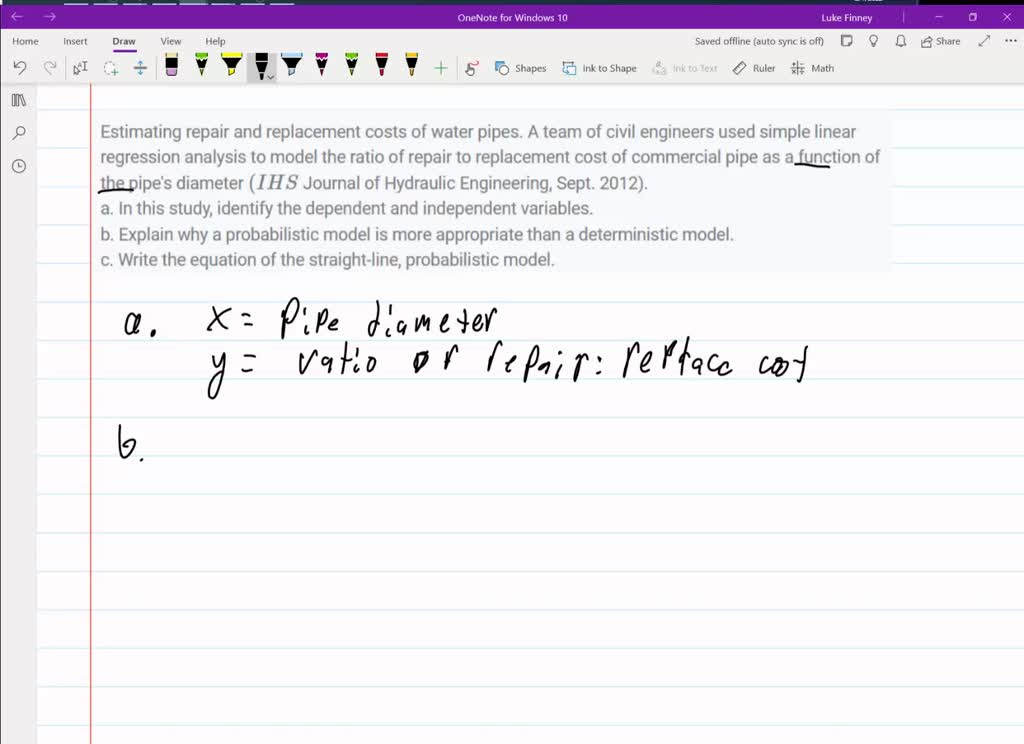 OneNote for Windows 10
Luke Finney
Home Insert Draw View Help
Saved offline (auto sync is off) Share
Shapes Ink to Shape Ink to Text Ruler Math
Estimating repair and replacement costs of water pipes. A team of civil engineers used simple linear
regression analysis to model the ratio of repair to replacement cost of commercial pipe as a function of
the pipe's diameter (IHS Journal of Hydraulic Engineering, Sept. 2012).
a. In this study, identify the dependent and independent variables.
b. Explain why a probabilistic model is more appropriate than a deterministic model.
c. Write the equation of the straight-line, probabilistic model.
a. x = Pipe diameter
y = ratio of repair: replace cost
b.